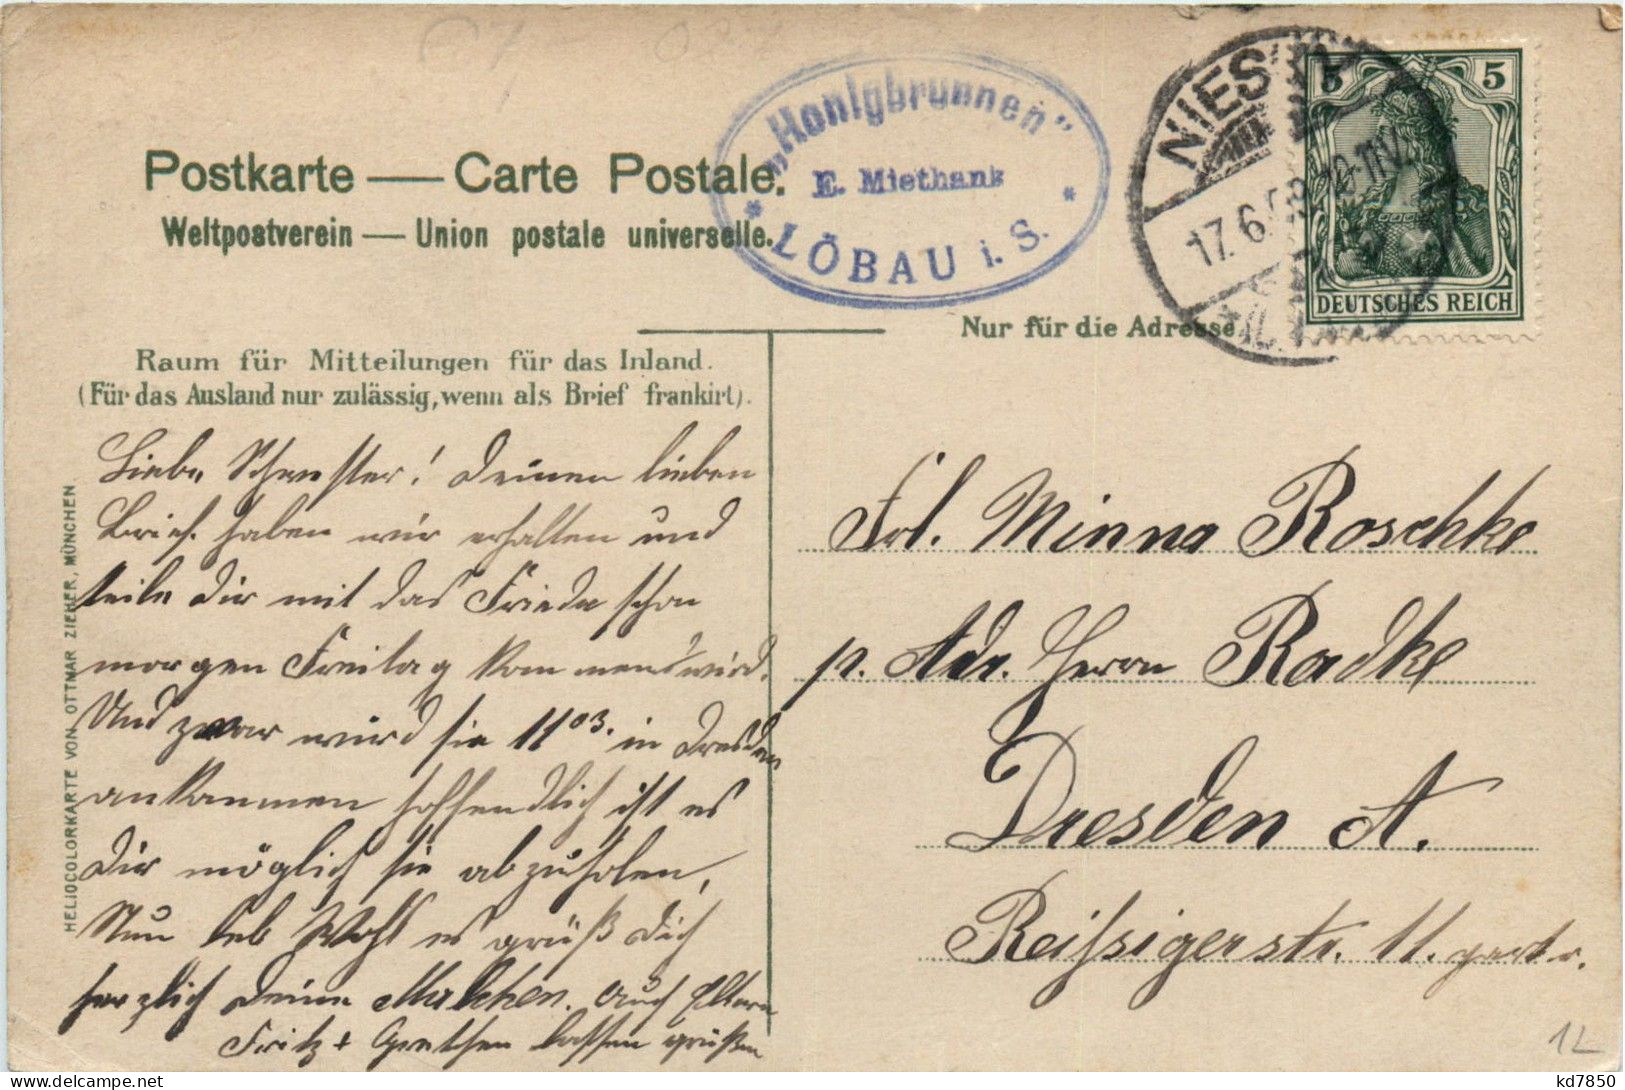 „Honigbrunnen“
E. Miethank
LÖBAU i. S.
NIES
17.6.
5 5
DEUTSCHES REICH
Postkarte — Carte Postale.
Weltpostverein — Union postale universelle.
Nur für die Adresse
Raum für Mitteilungen für das Inland.
(Für das Ausland nur zulässig, wenn als Brief frankirt).
HELIOCOLORKARTE VON OTTMAR ZIEHER, MÜNCHEN
Liebe Schwester! Deinen lieben
Brief haben wir erhalten und
teile Dir mit das Frieda schon
morgen Freitag kommen wird.
Und zwar wird sie 11 03. in Dresden
ankommen hoffendlich ist es
Dir möglich sie abzuholen,
Nun leb Wohl es grüß Dich
herzlich Deine Malchen. Auch Eltern
Fritz + Gretchen lassen grüßen
Frl. Minna Roschke
p. Adr. Herrn Radke
Dresden A.
Reißigerstr. 11.
1L
kd7850
delcampe.net